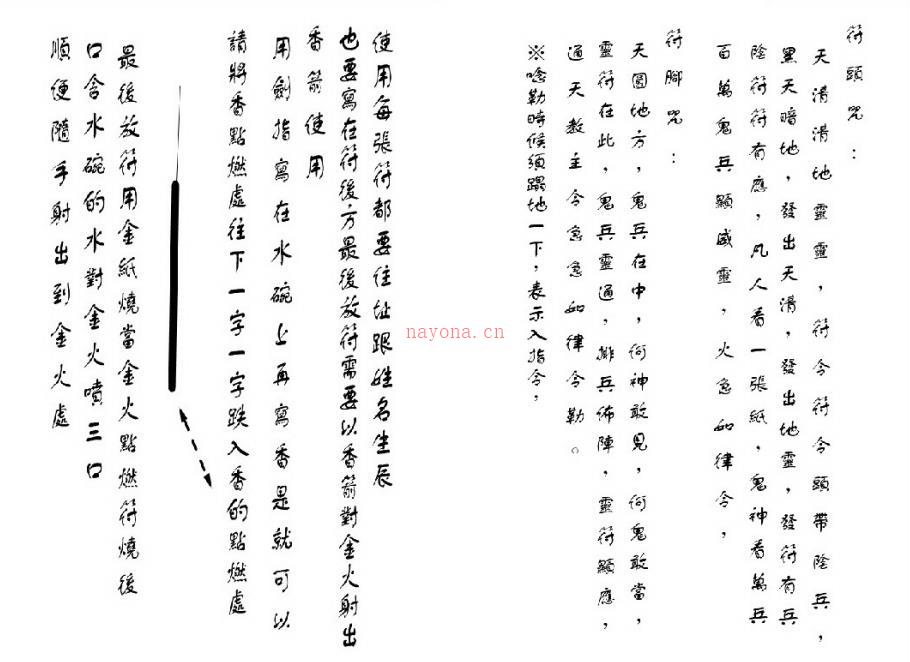 符頭咒：
天清清地靈靈，符令符令頭帶陰兵，
黑天暗地，發出天清，發出地靈，發符有兵
陰符符有應，凡人看一張紙，鬼神看萬兵
百萬鬼兵顯威靈，火急如律令，
符腳咒：
天圓地方，鬼兵在中，何神敢見，何鬼敢當，
靈符在此，鬼兵靈通，排兵佈陣，靈符顯應，
通天教主令急急如律令勒。
※唸勒時候須蹋地一下，表示入指令，
使用每張符都要住址跟姓名生辰
也要寫在符後方最後放符需要以香箭對金火射出
香箭使用
用劍指寫在水碗上再寫香是就可以
請將香點燃處往下一字一字跌入香的點燃處
最後放符用金紙燒當金火點燃符燒後
口含水碗的水對金火噴三口
順便隨手射出到金火處
nayona.cn